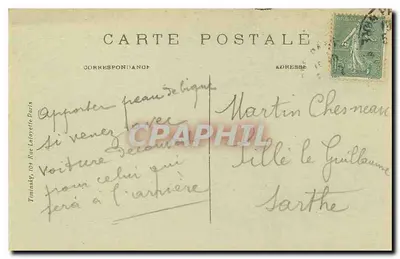 CARTE POSTALE
CORRESPONDANCE
ADRESSE
apporter peau de bique
si venez avec
voiture
pour celui qui
sera à l'arrière
Martin Chesneau
Sillé le Guillaume
Sarthe
Rue Lafayette Paris
CPAPHIL.COM